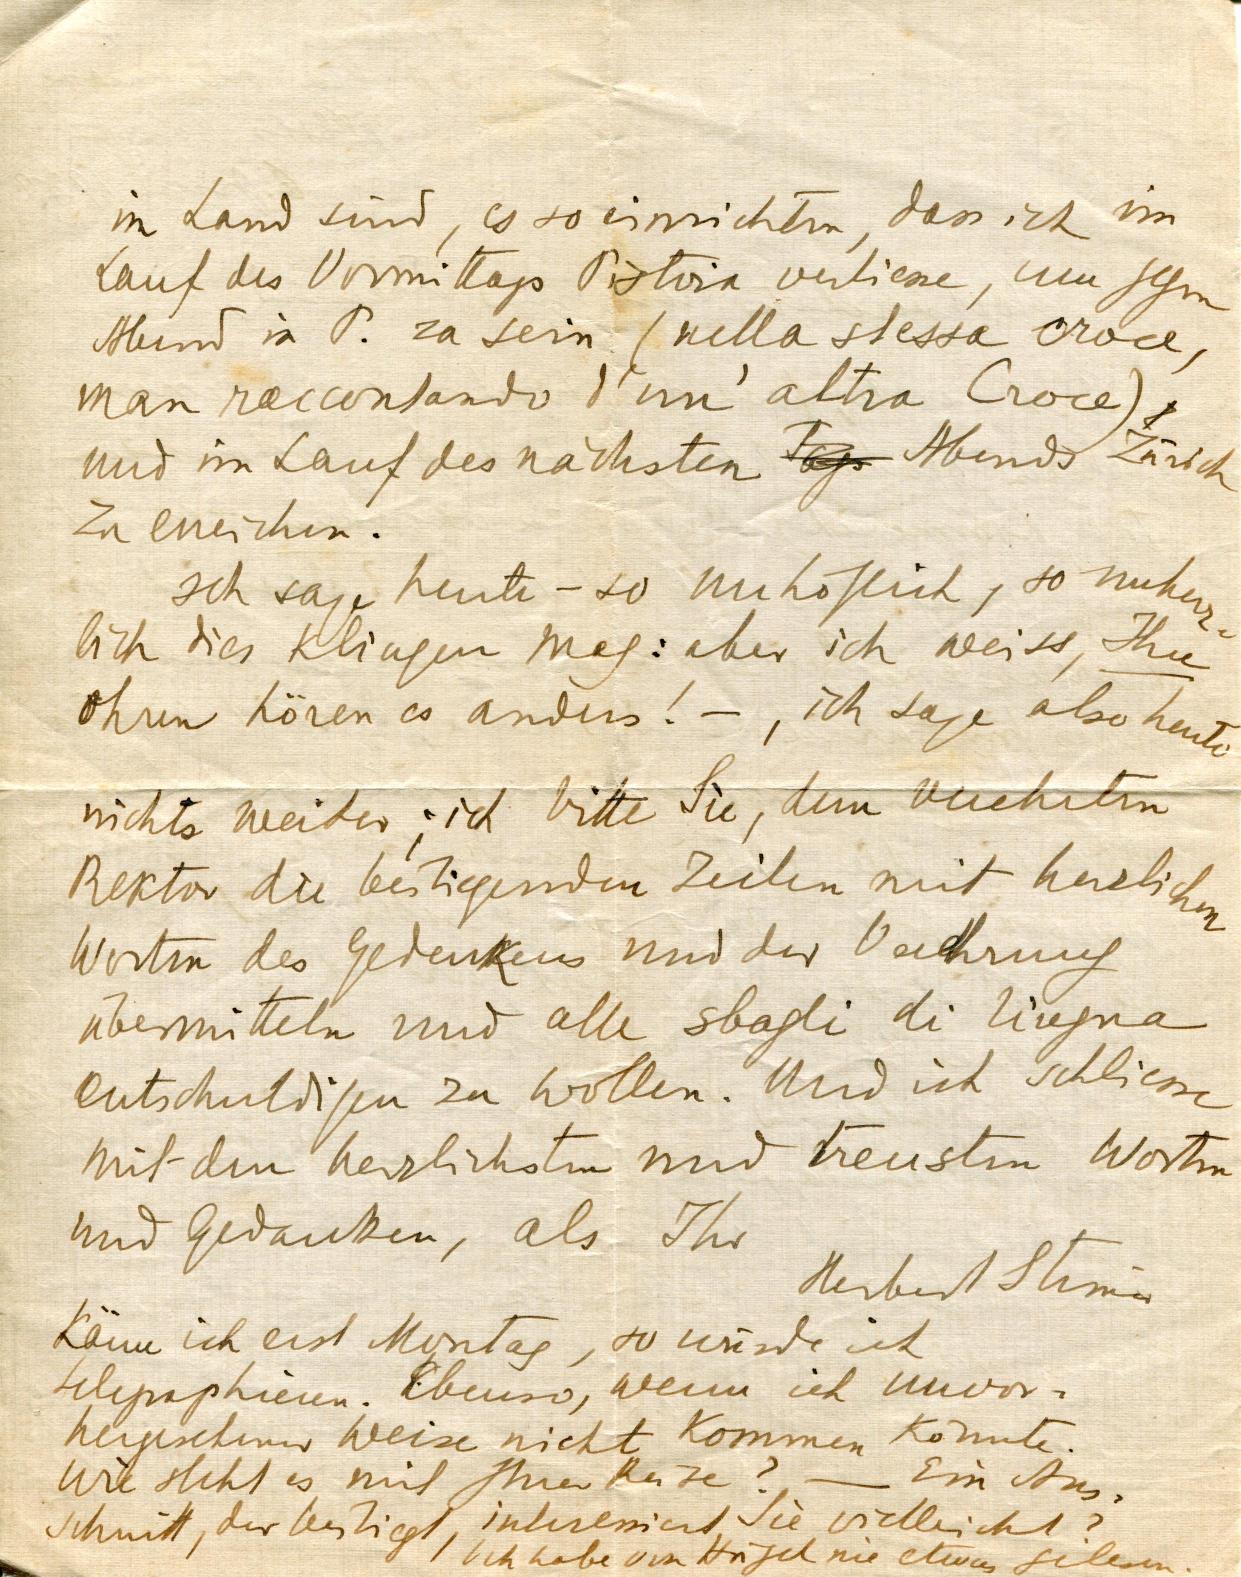 im Land sind, es so einrichten, dass ich im
Lauf des Vormittags Pistoia verliesse, um gegen
Abend in P. zu sein (nella stessa croce,
man raccontando d'un' altra Croce),
und im Lauf des nächsten Tags Abends Zürich
zu erreichen.
Ich sage heute – so unhöflich, so unherz-
lich dies klingen mag: aber ich weiss, Ihre
Ohren hören es anders! –, ich sage also heute
nichts weiter; ich bitte Sie, dem verehrten
Rektor die beiliegenden Zeilen mit herzlichen
Worten des Gedenkens und der Verehrung
übermitteln und alle sbagli di lingua
entschuldigen zu wollen. Und ich schliesse
mit den herzlichsten und treusten Worten
und Gedanken, als Ihr
Herbert Steiner
Käme ich erst Montag, so würde ich
telegraphieren. Ebenso, wenn ich unvor-
hergesehener Weise nicht kommen könnte.
Wie steht es mit Ihrer Reise? — Ein Aus-
schnitt, der beiliegt, interessiert Sie vielleicht?
Ich habe von Hügel nie etwas gelesen.